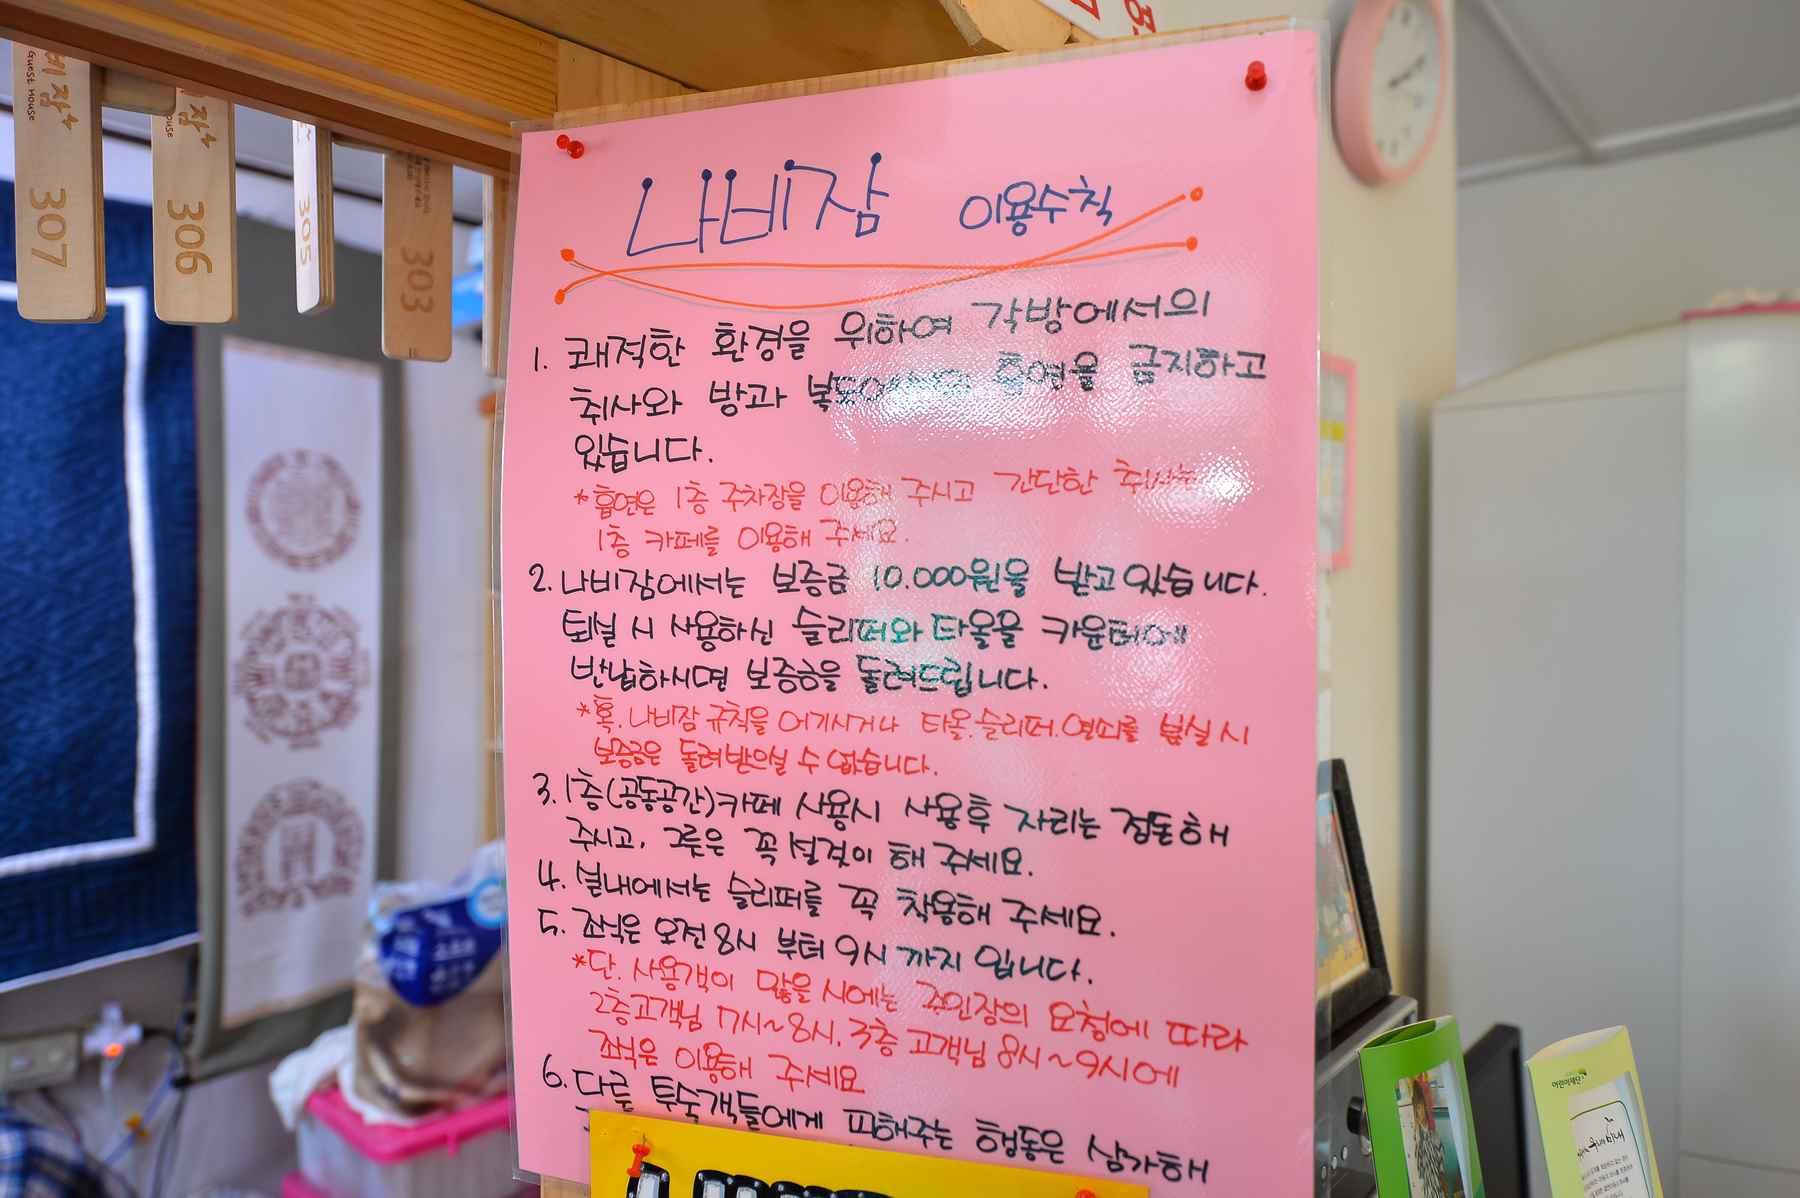 나비잠 이용수칙
1. 쾌적한 환경을 위하여 각방에서의
취사와 방과 복도에서의 흡연을 금지하고
있습니다.
*흡연은 1층 주차장을 이용해 주시고 간단한 취사는
1층 카페를 이용해 주세요.
2. 나비잠에서는 보증금 10.000원을 받고 있습니다.
퇴실 시 사용하신 슬리퍼와 타올을 카운터에
반납하시면 보증금을 돌려드립니다.
*혹. 나비잠 규칙을 어기시거나 타올.슬리퍼.열쇠를 분실 시
보증금은 돌려받으실 수 없습니다.
3. 1층(공동공간)카페 사용시 사용후 자리는 정돈해
주시고, 그릇은 꼭 설겆이 해 주세요.
4. 실내에서는 슬리퍼를 꼭 착용해 주세요.
5. 조식은 오전 8시 부터 9시 까지 입니다.
*단. 사용객이 많을 시에는 주인장의 요청에 따라
2층고객님 7시~8시, 3층 고객님 8시~9시에
조식은 이용해 주세요
6. 다른 투숙객들에게 피해주는 행동은 삼가해
비잠
Guest House
307
잠
House
306
305
303
어린이재단